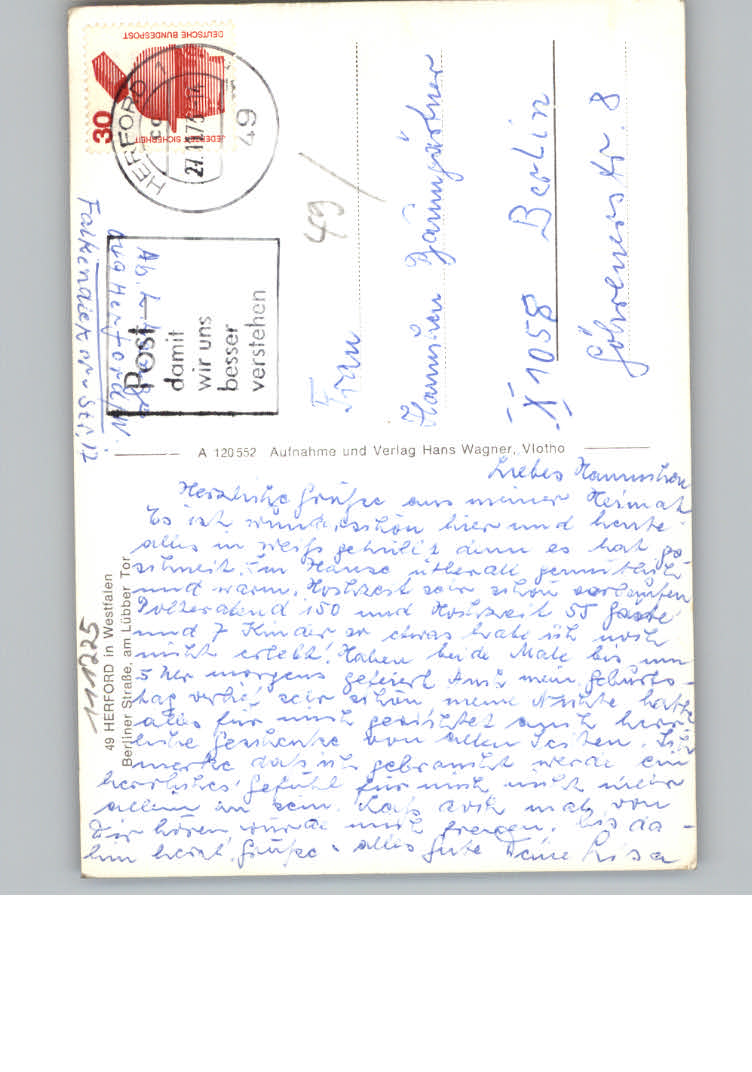 Liebes Hannchen
Herzliche Grüße aus meiner Heimat
Es ist wunderschön hier und heute
alles in weiß gehüllt denn es hat ge
schneit. Im Hause überall gemütlich
und warm. Hochzeit sehr schön verlaufen
Polterabend 150 und Hochzeit 55 Gäste
und 7 Kinder so etwas habe ich noch
nicht erlebt! Haben beide Male bis um
5 Uhr morgens gefeiert Auch mein Geburts-
tag verlief sehr schön meine Nichte hatte
alles für mich gerichtet auch herr
liche Geschenke von allen Seiten. Ich
merke daß ich gebraucht werde ein
herrliches Gefühl für mich nicht mehr
allein zu sein. Laß Dich mal von
Dir hören würde mich freuen. bis da-
hin herzl. Grüße alles Gute Deine Lisa
49 HERFORD in Westfalen
Berliner Straße, am Lübber Tor
111225
A 120552 Aufnahme und Verlag Hans Wagner, Vlotho
Frau
Hannchen Baumgärtner
X 1058 Berlin
Göhrenerstr. 8
49
Ab.
aus Herford/W.
Falkendieker Str. 12
Post —
damit
wir uns
besser
verstehen
HERFORD 1
49
DEUTSCHE BUNDESPOST
30
JEDERZEIT SICHERHEIT